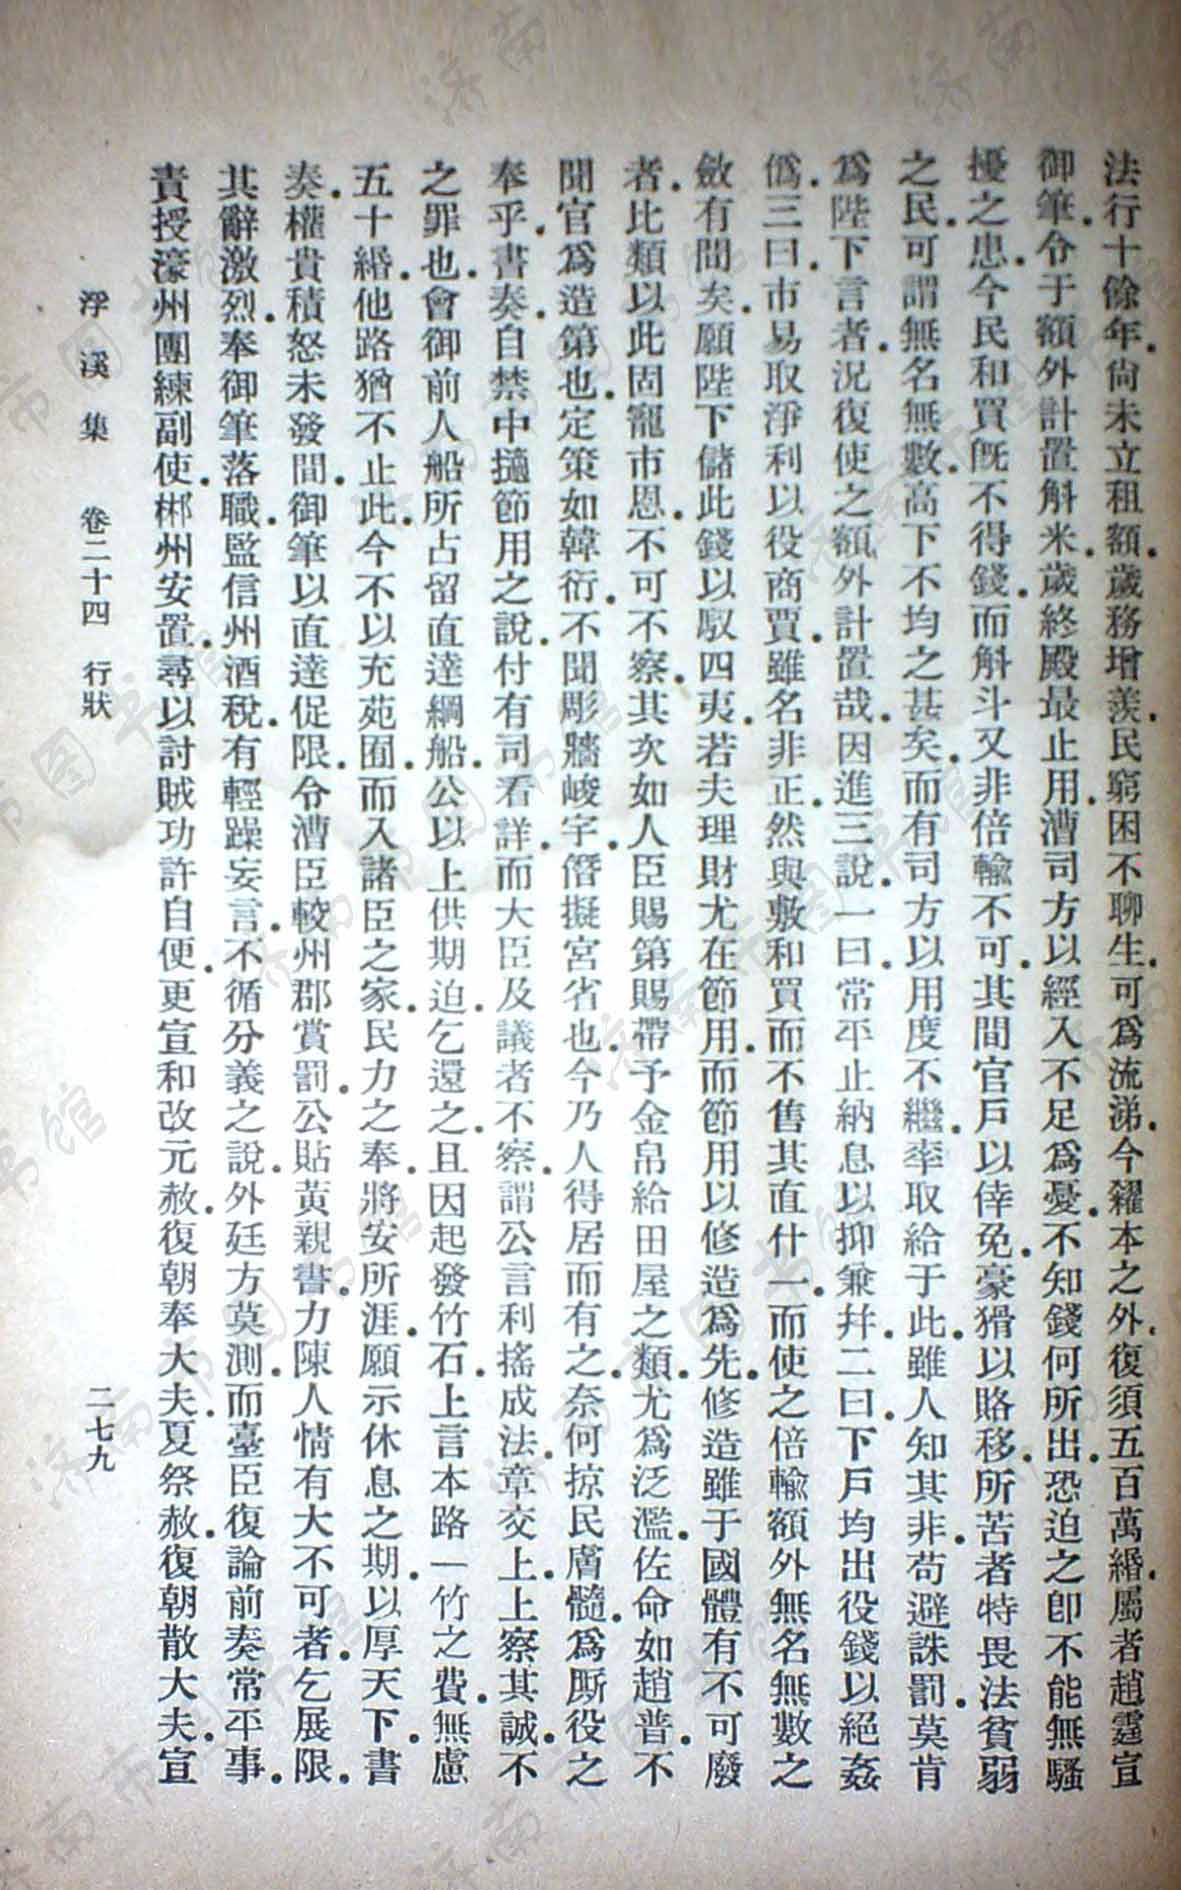 法行十餘年.尙未立租額.歲務增羨.民窮困不聊生.可爲流涕.今糴本之外.復須五百萬緡.屬者趙霆宣
御筆.令于額外計置斛米.歲終殿最止用.漕司方以經入不足爲憂.不知錢何所出.恐迫之卽不能無騷
擾之患.今民和買旣不得錢.而斛斗又非倍輸不可.其間官戶以倖免.豪猾以賂移.所苦者特畏法貧弱
之民.可謂無名無數.高下不均之甚矣.而有司方以用度不繼.率取給于此.雖人知其非.苟避誅罰.莫肯
爲陛下言者.況復使之額外計置哉.因進三說.一曰.常平止納息以抑兼幷.二曰.下戶均出役錢以絕姦
僞.三曰.市易取淨利以役商賈.雖名非正.然與敷和買而不售其直什一.而使之倍輸額外無名無數之
斂有間矣.願陛下儲此錢以馭四夷.若夫理財尤在節用.而節用以修造爲先.修造雖于國體有不可廢
者.比類以此固寵市恩.不可不察.其次如人臣賜第賜帶.予金帛給田屋之類.尤爲泛濫.佐命如趙普.不
聞官爲造第也.定策如韓琦.不聞彫牆峻宇.僭擬宮省也.今乃人得居而有之.奈何掠民膚髓.爲厮役之
奉乎.書奏.自禁中擿節用之說.付有司看詳.而大臣及議者不察.謂公言利搖成法.章交上.上察其誠.不
之罪也.會御前人船所占留直達綱船.公以上供期迫.乞還之.且因起發竹石.上言本路一竹之費.無慮
五十緡.他路猶不止此.今不以充苑囿.而入諸臣之家.民力之奉.將安所涯.願示休息之期.以厚天下.書
奏.權貴積怒未發間.御筆以直達促限.令漕臣較州郡賞罰.公貼黃親書.力陳人情有大不可者.乞展限.
其辭激烈.奉御筆落職.監信州酒稅.有輕躁妄言.不循分義之說.外廷方莫測.而臺臣復論前奏常平事.
責授濠州團練副使.郴州安置.尋以討賊功許自便.更宣和改元赦.復朝奉大夫.夏祭赦.復朝散大夫.宣
浮溪集 卷二十四 行狀 二七九